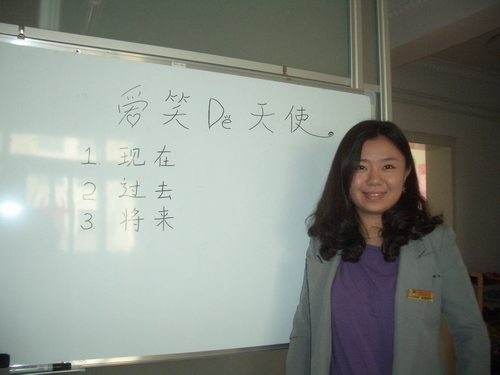 爱笑De天使。
1. 现在
2 过去
3. 将来